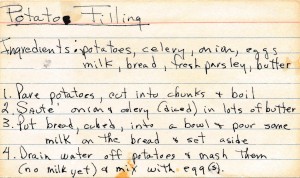 Potato Filling
Ingredients: potatoes, celery, onion, eggs
milk, bread, fresh parsley, butter
1. Pare potatoes, cut into chunks & boil
2. Sauté onion & celery (diced) in lots of butter
3. Put bread, cubed, into a bowl & pour some
milk on the bread & set aside
4. Drain water off potatoes & mash them
(no milk yet) & mix with egg(s).